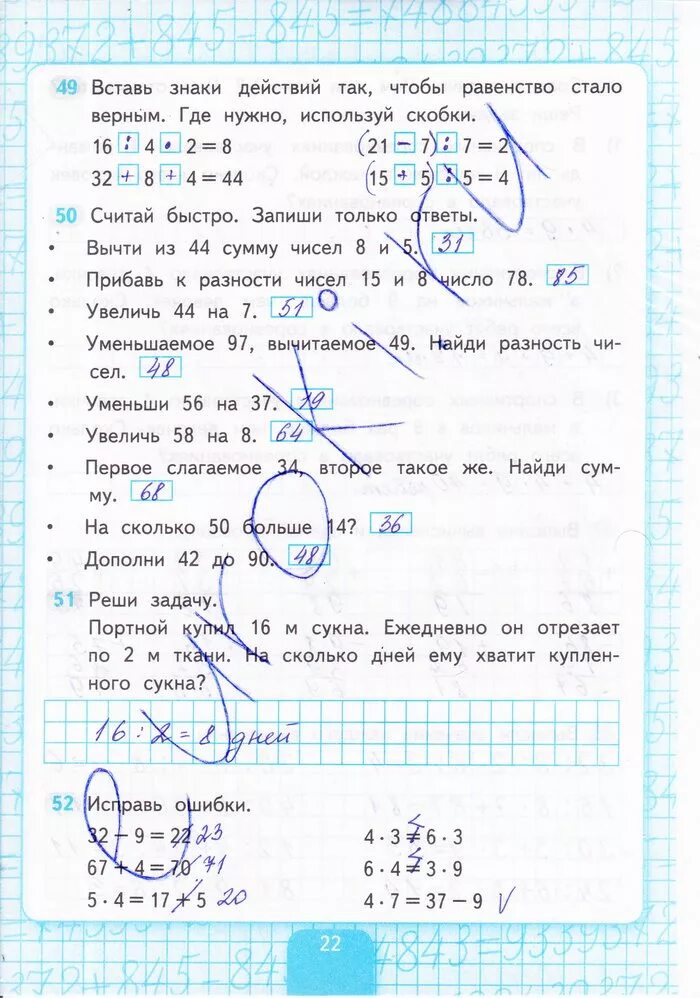 49 Вставь знаки действий так, чтобы равенство стало
верным. Где нужно, используй скобки.
16 : 4 · 2 = 8 (21 − 7) : 7 = 2
32 + 8 + 4 = 44 (15 + 5) : 5 = 4
50 Считай быстро. Запиши только ответы.
• Вычти из 44 сумму чисел 8 и 5. 31
• Прибавь к разности чисел 15 и 8 число 78. 85
• Увеличь 44 на 7. 51
• Уменьшаемое 97, вычитаемое 49. Найди разность чи-
сел. 48
• Уменьши 56 на 37. 19
• Увеличь 58 на 8. 64
• Первое слагаемое 34, второе такое же. Найди сум-
му. 68
• На сколько 50 больше 14? 36
• Дополни 42 до 90. 48
51 Реши задачу.
Портной купил 16 м сукна. Ежедневно он отрезает
по 2 м ткани. На сколько дней ему хватит куплен-
ного сукна?
16 : 2 = 8 дней
52 Исправь ошибки.
32 − 9 = 22 23 4 · 3 = 6 · 3
67 + 4 = 70 71 6 · 4 = 3 · 9
5 · 4 = 17 + 5 20 4 · 7 = 37 − 9 V
22